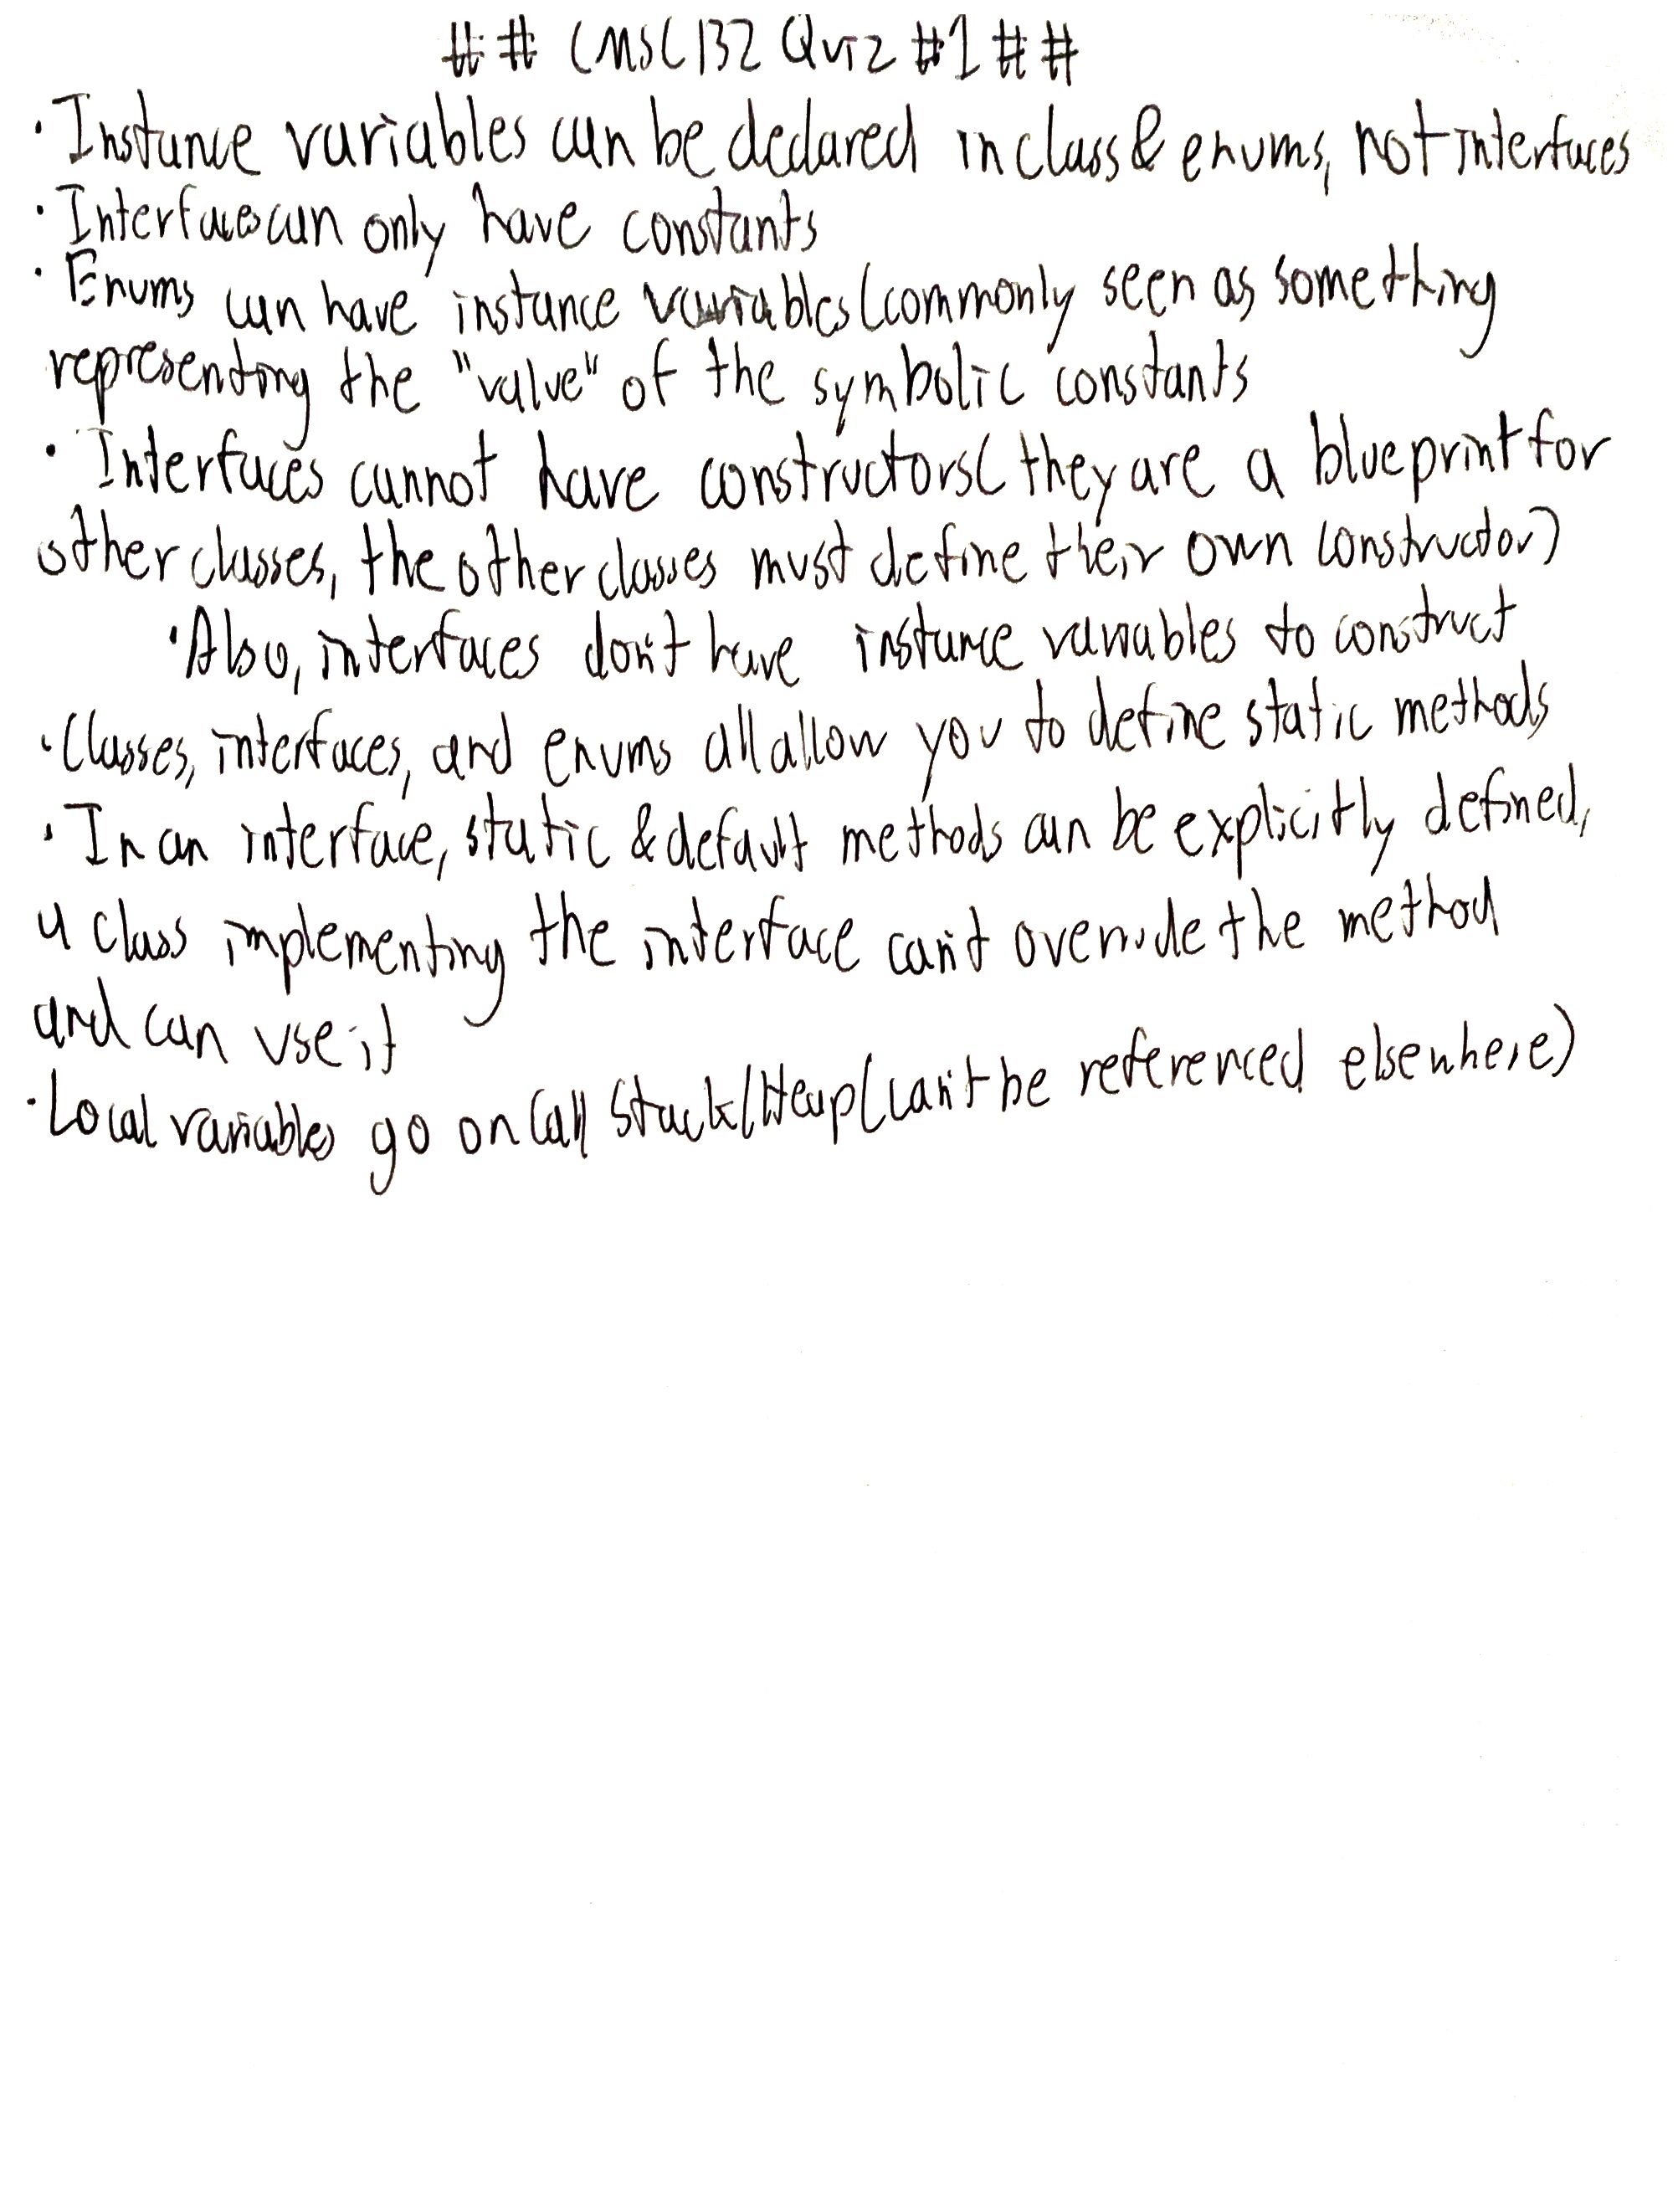 ## CMSC132 Quiz #1 ##
· Instance variables can be declared in class & enums, not interfaces
· Interfaces can only have constants
· Enums can have instance variables (commonly seen as something
representing the "value" of the symbolic constants
· Interfaces cannot have constructors ( they are a blueprint for
other classes, the other classes must define their own constructor)
· Also, interfaces don't have instance variables to construct
· Classes, interfaces, and enums all allow you to define static methods
· In an interface, static & default methods can be explicitly defined,
a class implementing the interface can't override the method
and can use it
· Local variables go on Call Stack/Heap (can't be referenced elsewhere)